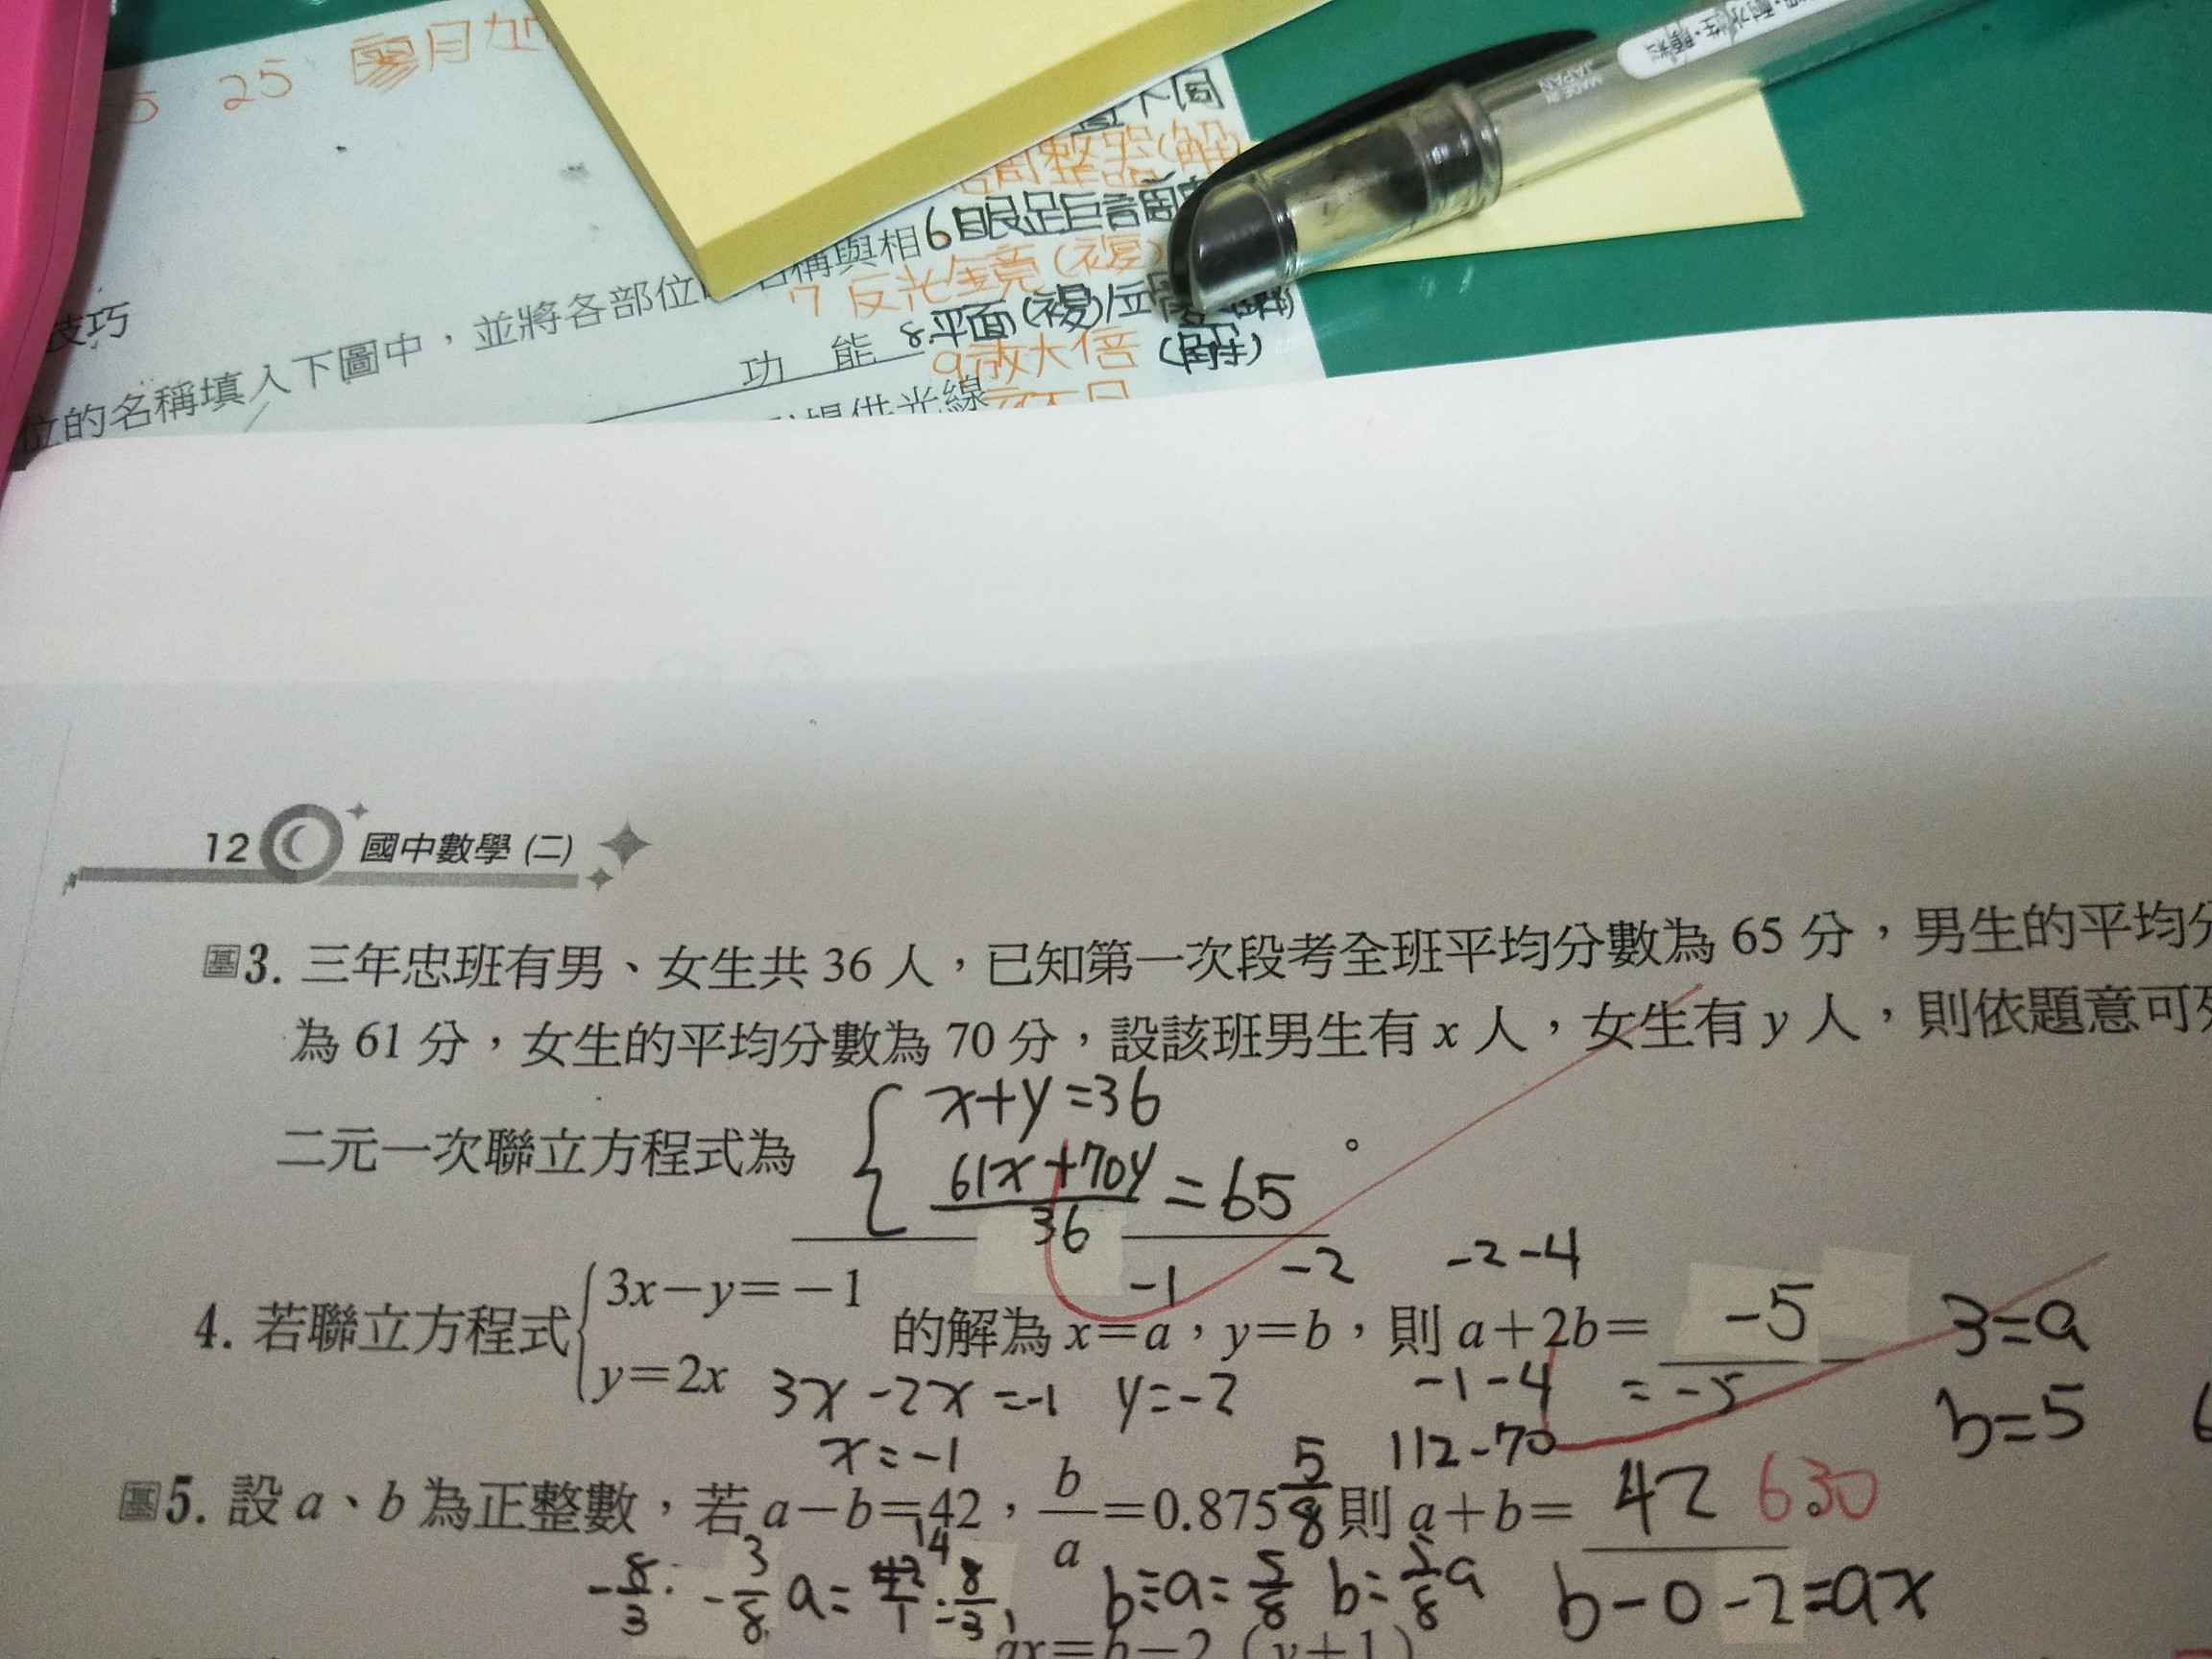 25
耐水性・顏料
MADE IN JAPAN
整器(解
6目艮足巨
7 反光金竟(複)
8.平面(複)/立
9放大倍
(解)
技巧
位的名稱填入下圖中，並將各部位
稱與相
功 能
提供光線
12 國中數學(二)
基3. 三年忠班有男、女生共 36 人，已知第一次段考全班平均分數為 65 分，男生的平均分
為 61 分，女生的平均分數為 70 分，設該班男生有 x 人，女生有 y 人，則依題意可列
二元一次聯立方程式為 { x+y=36
61x+70y/36 = 65 。
-1 -2 -2-4
4. 若聯立方程式 { 3x－y＝－1 y＝2x 的解為 x＝a，y＝b，則 a＋2b＝ -5
3=a
3x-2x=-1 y=-2 -1-4 =-5
b=5
x=-1 112-70
基5. 設 a、b 為正整數，若 a－b＝42，b/a＝0.875 5/8 則 a＋b＝ 42 630
14
-8/3 -3/8 a= 42/1 8/3 b÷a=5/8 b=5/8a b-0-2=ax
ax＝b－2 (y＋1)